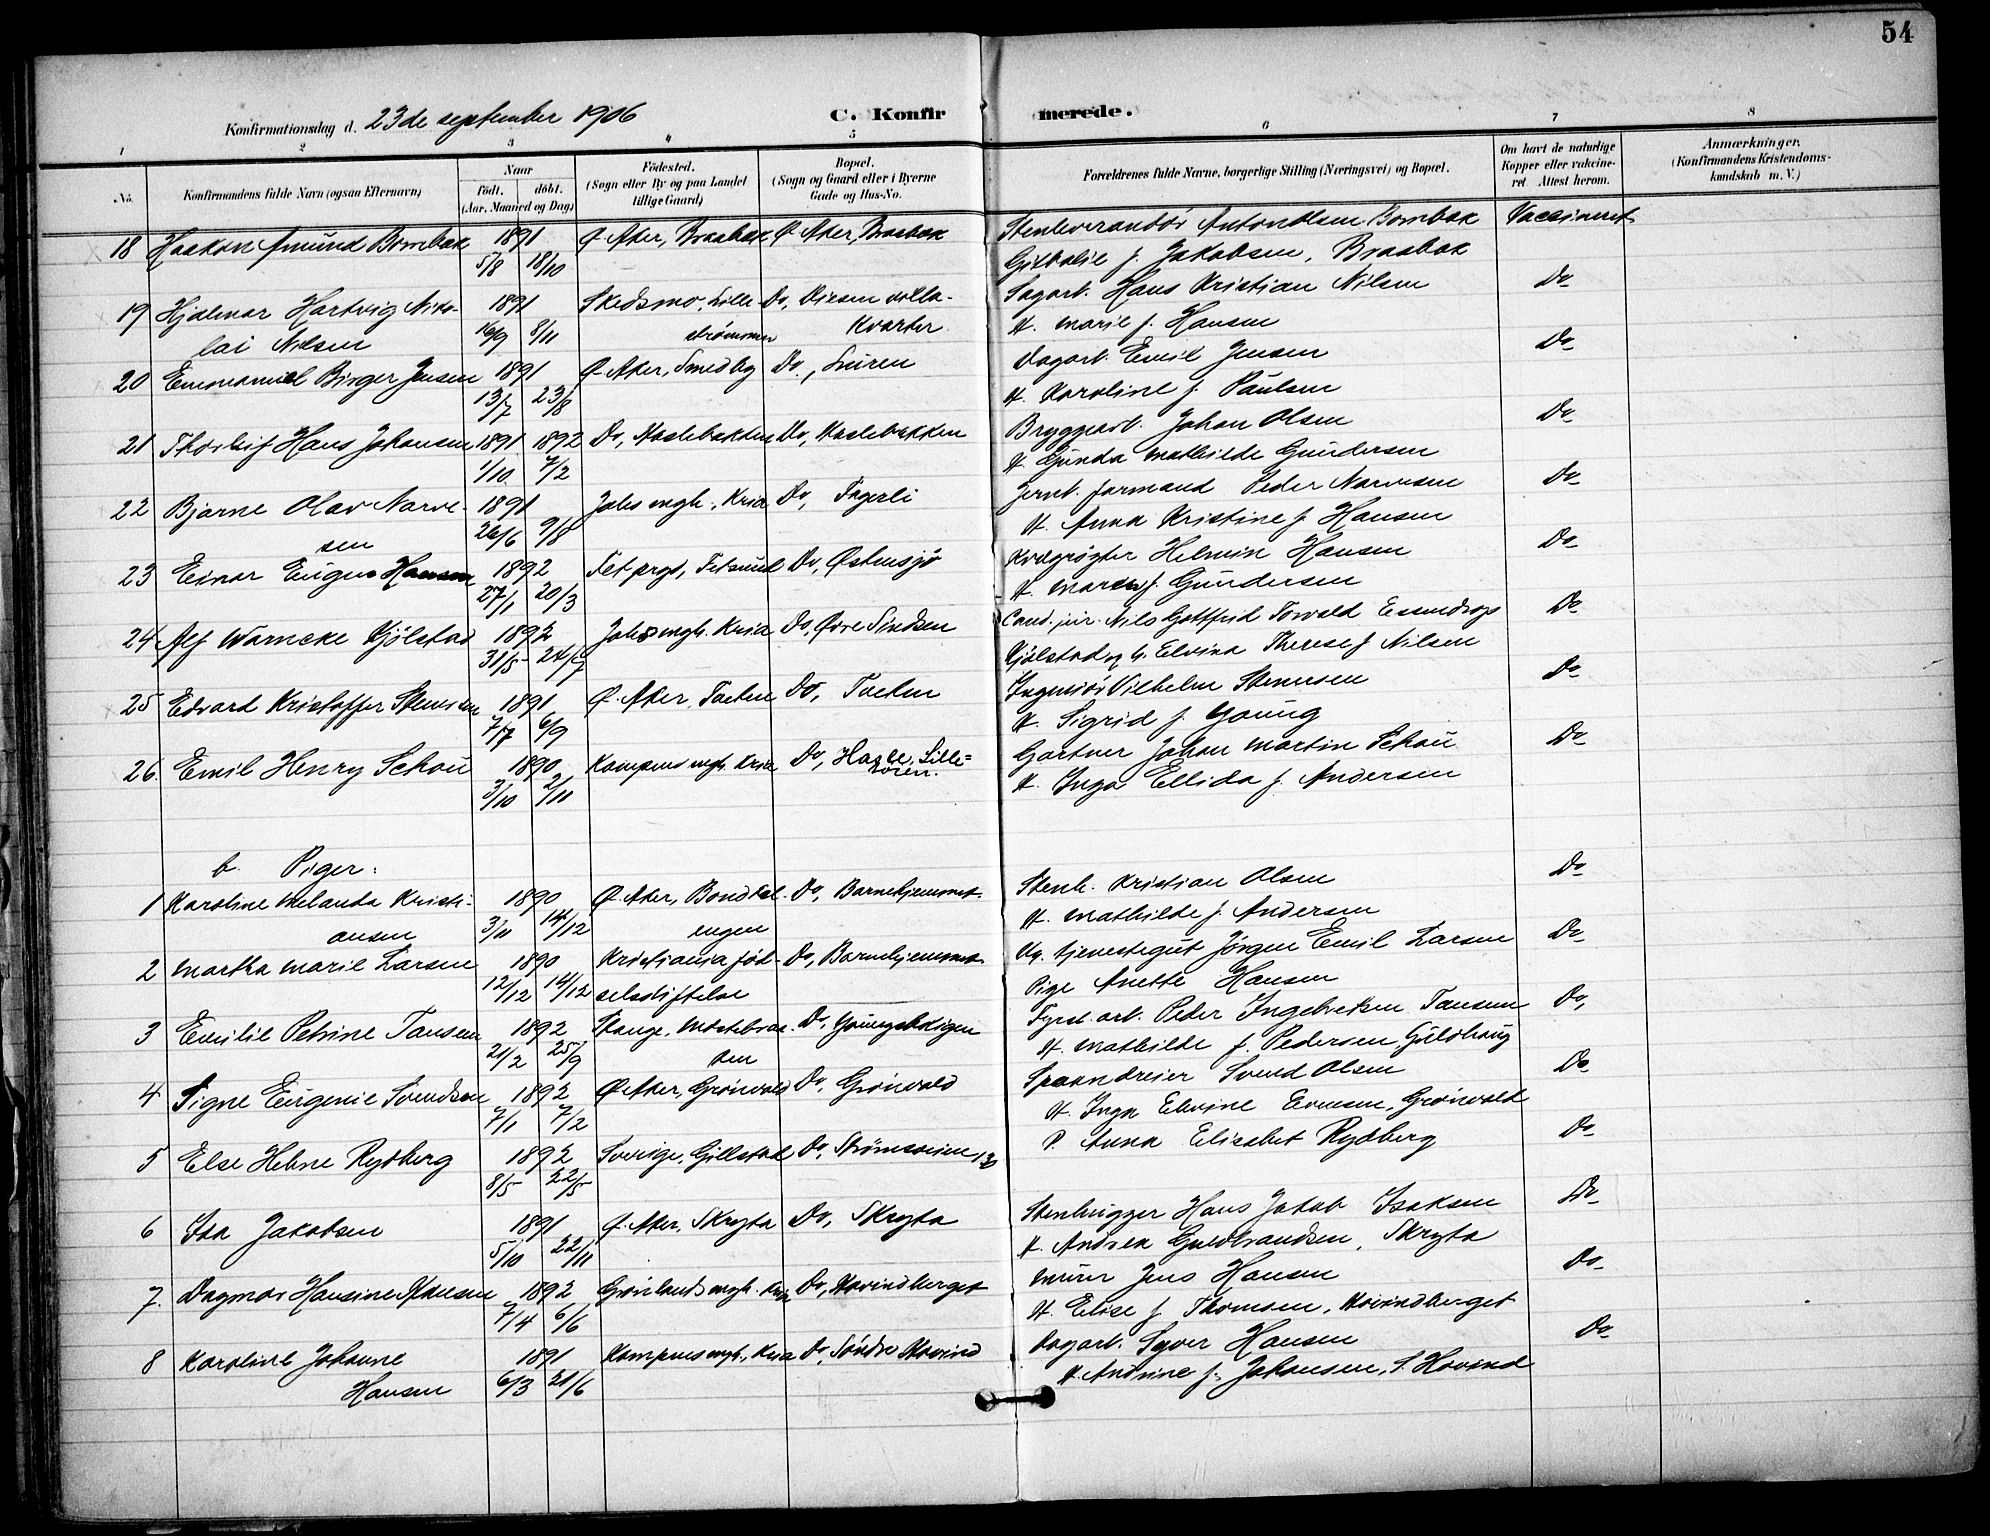 54
Konfirmationsdag d. 23de september 1906
C. Konfirmerede.
1 2 3 4 5 6 7 8
No.
Konfirmandens fulde Navn (ogsaa Efternavn)
Naar
født. døbt.
(Aar, Maaned og Dag)
Fødested.
(Sogn eller By og paa Landet
tillige Gaard)
Bopæl.
(Sogn og Gaard eller i Byerne
Gade og Hus-No.
Forældrenes fulde Navne, borgerlige Stilling (Næringsvei) og Bopæl.
Om havt de naturlige
Kopper eller vakcine-
ret Attest herom.
Anmærkninger.
(Konfirmandens Kristendoms-
kundskab m. V.)
18 Haakon Amund Bornbak 1891 Ø. Aker, Brasbak Ø. Aker, Brasbak Stenleverandør Anton Olsen Bornbak Vaccineret
5/8 18/10 f. Jakobsen, Brasbak
19 Hjalmar Hartvig Niko- 1891 Skedsmo, Lille- Do, Sagarb. Hans Kristian Nilsen Do
lai Nilsen 16/9 8/11 strømmen Kvarter H. Marie f. Hansen
20 Emanuel Birger Jensen 1891 Ø. Aker, Smedby Do, Luren Dagarb. Emil Jensen Do
13/7 23/8 H. Karoline f. Paulsen
21 Thorleif Hans Johansen 1891 1892 Do, Haslebakken Do, Haslebakken Bryggearb. Johan Olsen Do
1/10 7/2 H. Gunda Mathilde Gundersen
22 Bjarne Olav Narve- 1891 Johs mgh., Kria Do, Fagerli Jernb. formand Peder Narvesen Do
sen 26/6 9/8 H. Anna Kristine f. Hansen
23 Einar Eugen Hansen 1892 Fet prgd, Fetsund Do, Østensjø Kvægrøgter Helmin Hansen Do
27/1 20/3 H. Maren f. Gundersen
24 Alf Warncke Kjølstad 1892 Johs mgh. Kria Do, Øvre Sindsen Cand. jur. Nils Gottfrid Torvald Essendrops Do
31/5 24/7 Kjølstad og h. Elvina Therese f. Nilsen
25 Edvard Kristoffer Stenersen 1891 Ø. Aker, Tveten Do, Tveten Ingeniør Vilhelm Stenersen Do
7/7 6/9 H. Sigrid f. Young
26. Emil Henry Schou 1890 Kampens mgh. Kria Do, Hasle, Lille- Gartner Johan Martin Schou Do
3/10 2/11 tøien. H. Inga Ellida f. Andersen
b. Piger:
1 Karoline Melanda Kristi- 1890 Ø. Aker, Do, Barnehjemmet Stenh. Kristian Olsen Do
ansen 3/10 14/12 engen H. Mathilde f. Andersen
2 Martha Marie Larsen 1890 Kristiania fød- Do, Barnehjemmet Ug. tjenestegut Jørgen Emil Larsen Do
12/12 14/12 selsstiftelse Pige Anette Hansen
3 Emilie Petrine Tansem 1892 Stange, Do, Youngsløkken Fyrst. arb. Peder Ingebretsen Tansem Do,
21/2 25/9 H. Mathilde f. Pedersen, Guldhaug
4 Signe Eugenie Svendsen 1892 Ø. Aker, Grønvold Do, Grønvold Spaandreier Svend Olsen Do
7/1 7/2 H. Inga Elevine Evensen, Grønvold
5 Else Helene Rydberg 1892 Sverige, Gillstad Do, Strømsveien P. Anna Elisabet Rydberg Do
8/5 22/5
6 Isa Jakobsen 1891 Ø. Aker, Skryta Do, Skryta Stenhugger Hans Jakob Isaksen Do
5/10 22/11 H. Andrea Guldbrandsen, Skryta
7. Dagmar Hansine Hansen 1892 Grønlands mgh. Kria Do, Hovindberget Murer Jens Hansen Do
7/4 6/6 H. Elise f. Thomsen, Hovindberget
8 Karoline Johanne 1891 Kampens mgh., Kria Do, Søndre Hovind Dagarb. Syver Hansen Do
Hansen 6/3 21/6 H. Andrine f. Johansen, S. Hovind